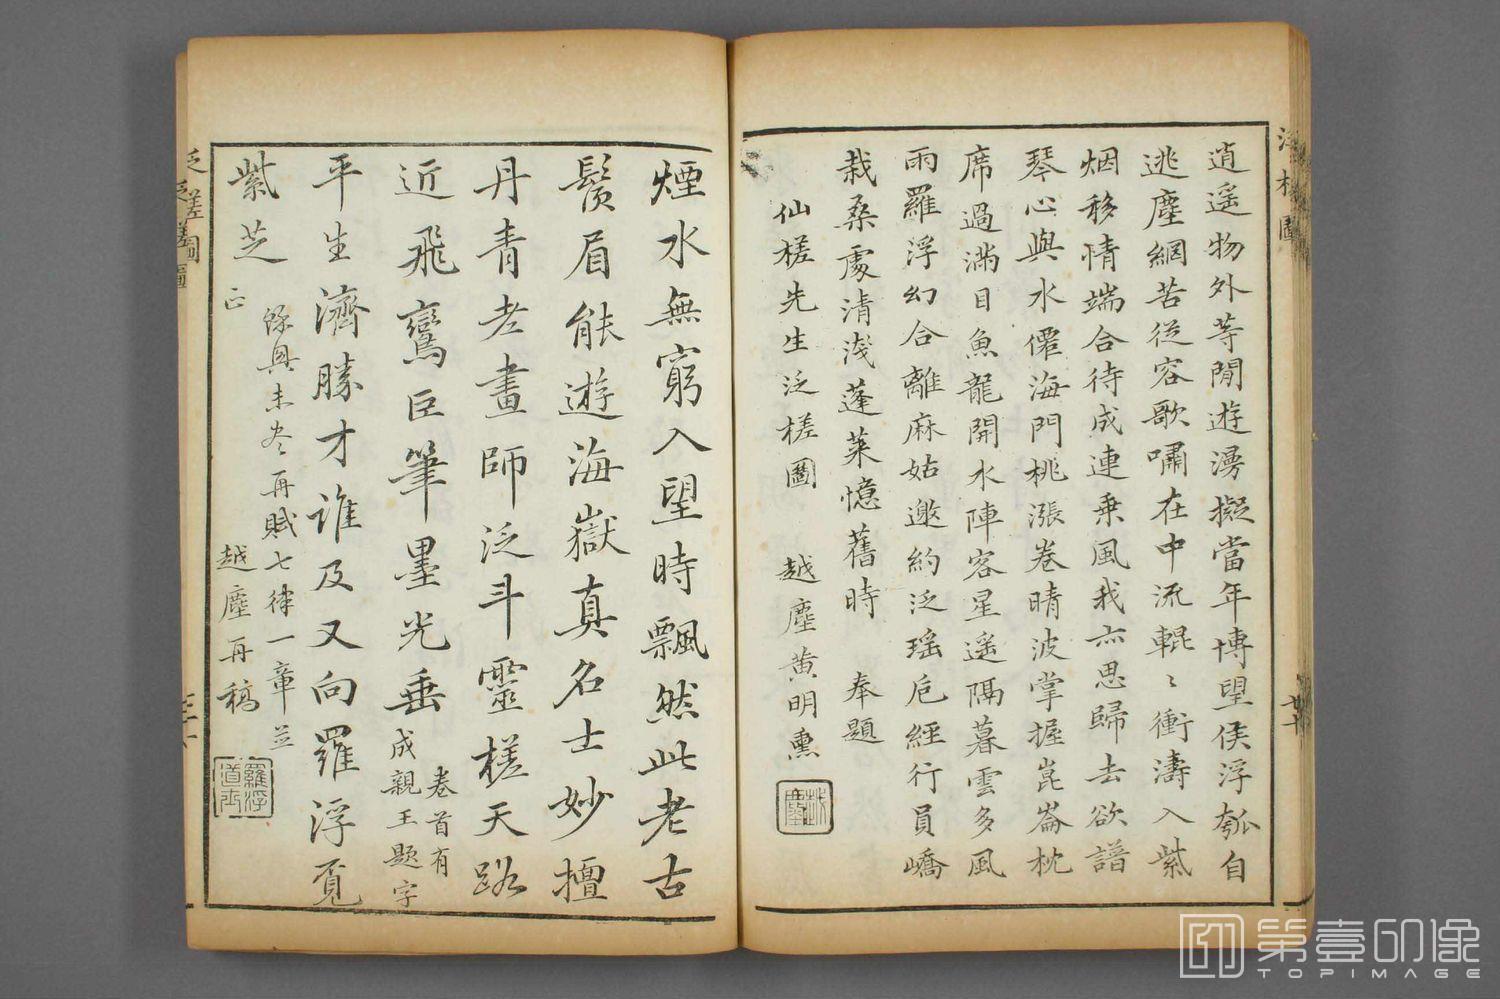 逍遥物外等閒遊湧擬當年博望侯浮瓠自
逃塵網苦從容歌嘯在中流輥〻衝濤入紫
烟移情端合待成連乗風我亦思歸去欲譜
琴心與水僊海門桃漲卷晴波掌握崑崙枕
席過滿目魚龍開水陣客星遥隔暮雲多風
雨羅浮幻合離麻姑邀約泛瑶巵經行員嶠
栽桑處清淺蓬萊憶舊時 奉題
仙槎先生泛槎圖 越塵黄明薰
越塵
煙水無窮入望時飄然此老古
鬚眉能遊海嶽真名士妙擅
丹青老畫師泛斗靈槎天路
近飛鸞巨筆墨光垂 卷首有
成親王題字
平生濟勝才誰及又向羅浮覓
紫芝 餘興未尽再賦七律一章並
正 越塵再稿
羅浮道士
第壹印像
TOPIMAGE